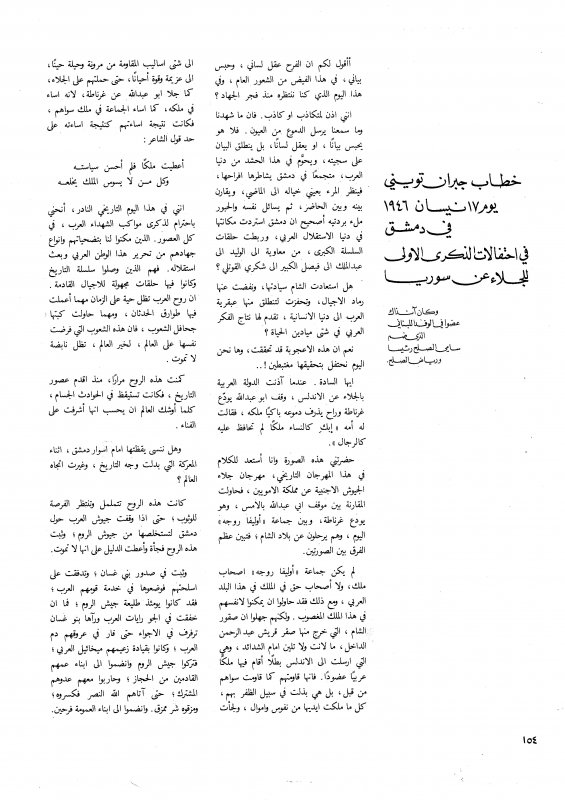 خطاب جبران تويني
يوم ١٧ نيسان ١٩٤٦
في دمشق
في احتفالات الذكرى الاولى
للجلاء عن سوريا
وكان آنذاك
عضوا في الوفد اللبناني
الذي ضم
سامي الصلح رئيسا
ورياض الصلح.
أأقول لكم ان الفرح عقل لساني ، وحبس
بياني ، في هذا الفيض من الشعور العام ، وفي
هذا اليوم الذي كنا ننتظره منذ فجر الجهاد ؟
انني اذن لمتكاذب او كاذب. فان ما شهدنا
وما سمعنا يرسل الدموع من العيون. فلا هو
يحبس بيانًا ، او يعقل لسانًا، بل ينطلق البيان
على سجيته ، ويحوّم في هذا الحشد من دنيا
العرب ، متجمعًا في دمشق يشاطرها افراحها،
فينظر المرء بعيني خياله الى الماضي، ويقارن
بينه وبين الحاضر، ثم يسائل نفسه والحبور
ملء بردتيه أصحيح ان دمشق استردت مكانتها
في دنيا الاستقلال العربي، وربطت حلقات
السلسلة الكبرى، من معاوية الى الوليد الى
عبدالملك الى فيصل الكبير الى شكري القوتلي ؟
هل استعادت الشام سيادتها، ونفضت عنها
رماد الاجيال، وتحفزت لتنطلق منها عبقرية
العرب الى دنيا الانسانية ، تقدم لها نتاج الفكر
العربي في شتى ميادين الحياة ؟
نعم ان هذه الاعجوبة قد تحققت، وها نحن
اليوم نحتفل بتحقيقها مغتبطين !..
ايها السادة. عندما آذنت الدولة العربية
بالجلاء عن الاندلس ، وقف ابو عبدالله يودّع
غرناطة وراح يذرف دموعه باكيًا ملكه ، فقالت
له أمه «إبكِ كالنساء ملكًا لم تحافظ عليه
كالرجال».
حضرتني هذه الصورة وانا أستعد للكلام
في هذا المهرجان التاريخي، مهرجان جلاء
الجيوش الاجنبية عن مملكة الامويين ، فحاولت
المقارنة بين موقف ابي عبدالله بالامس ، وهو
يودع غرناطة، وبين جماعة «أوليفا روجه»
اليوم ، وهم يرحلون عن بلاد الشام ؛ فتبين عظم
الفرق بين الصورتين.
لم يكن جماعة «أوليفا روجه» اصحاب
ملك، ولا أصحاب حق في الملك في هذا البلد
العربي ، ومع ذلك فقد حاولوا ان يمكنوا لانفسهم
في هذا الملك المغصوب . ولكنهم جهلوا ان صقور
الشام ، التي خرج منها صقر قريش عبد الرحمن
الداخل، ما لانت ولا تلين امام الشدائد ، وهي
التي ارسلت الى الاندلس بطلًا أقام فيها ملكًا
عربيًا عضودًا. فانها قاومتهم كما قاومت سواهم
من قبل، بل هي بذلت في سبيل الظفر بهم ،
كل ما ملكت ايديها من نفوس واموال ، ولجأت
الى شتى اساليب المقاومة من مرونة وحيلة حينًا،
الى عزيمة وقوة أحيانًا، حتى حملتهم على الجلاء،
كما جلا ابو عبدالله عن غرناطة، لانه اساء
في ملكه، كما اساء الجماعة في ملك سواهم ،
فكانت نتيجة اساءتهم كنتيجة اساءته على
حد قول الشاعر :
أعطيت ملكًا فلم أحسن سياسته
وكل من لا يسوس الملك يخلعه
انني في هذا اليوم التاريخي النادر، أنحني
باحترام لذكرى مواكب الشهداء العرب ، في
كل العصور. الذين مكنوا لنا بتضحياتهم وانواع
جهادهم من تحرير هذا الوطن العربي وبعث
استقلاله. فهم الذين وصلوا سلسلة التاريخ
وكانوا فيها حلقات مجهولة للاجيال القادمة .
ان روح العرب تظل حية على الزمان مهما أعملت
فيها طوارق الحدثان ، ومهما حاولت كبتها
جحافل الشعوب ، فان هذه الشعوب التي فرضت
نفسها على العالم ، لخير العالم ، تظل نابضة
لا تموت .
كمنت هذه الروح مرارًا، منذ اقدم عصور
التاريخ ، فكانت تستيقظ في الحوادث الجسام ،
كلما أوشك العالم ان يحسب انها أشرفت على
الفناء .
وهل ننسى يقظتها امام اسوار دمشق ، اثناء
المعركة التي بدلت وجه التاريخ ، وغيرت اتجاه
العالم ؟
كانت هذه الروح تتململ وتنتظر الفرصة
للوثوب ؛ حتى اذا وقفت جيوش العرب حول
دمشق لتستخلصها من جيوش الروم ؛ وثبت
هذه الروح فجأة وأعطت الدليل على انها لا تموت.
وثبت في صدور بني غسان ؛ وتدفقت على
اسلحتهم فوضعوها في خدمة قومهم العرب ؛
فقد كانوا يومئذ طليعة جيش الروم ؛ فما ان
خفقت في الجو رايات العرب ورآها بنو غسان
ترفرف في الاجواء حتى فار في عروقهم دم
العرب ؛ وكانوا بقيادة زعيمهم ميخائيل العربي ؛
فتركوا جيش الروم وانضموا الى ابناء عمهم
القادمين من الحجاز ؛ وحاربوا معهم عدوهم
المشترك؛ حتى أتاهم الله النصر فكسروه؛
ومزقوه شر ممزق. وانضموا الى ابناء العمومة فرحين.
١٥٤